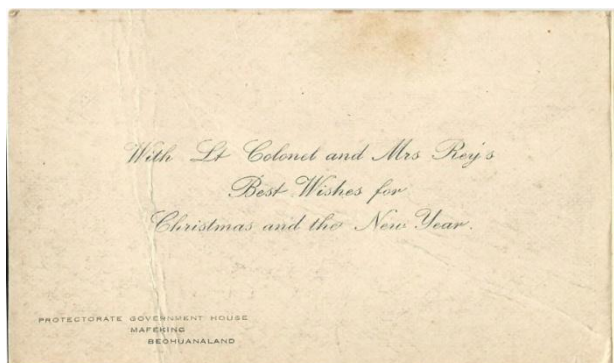 With Lt Colonel and Mrs Rey's
Best Wishes for
Christmas and the New Year.
PROTECTORATE GOVERNMENT HOUSE
MAFEKING
BECHUANALAND